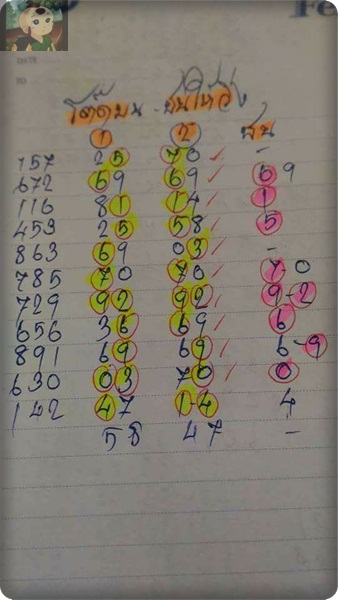 Fe
โต๊ดบน - ยืนไหล่
① ② ชน
157 25 70 ✓ -
672 69 69 ✓ 69
116 81 14 ✓ 1
453 25 58 ✓ 5
863 69 03 ✓ -
785 70 70 ✓ 7-0
729 92 92 ✓ 9-2
656 36 69 ✓ 6
891 69 69 ✓ 6-9
630 03 70 ✓ 0
142 47 1-4 4
58 47 -